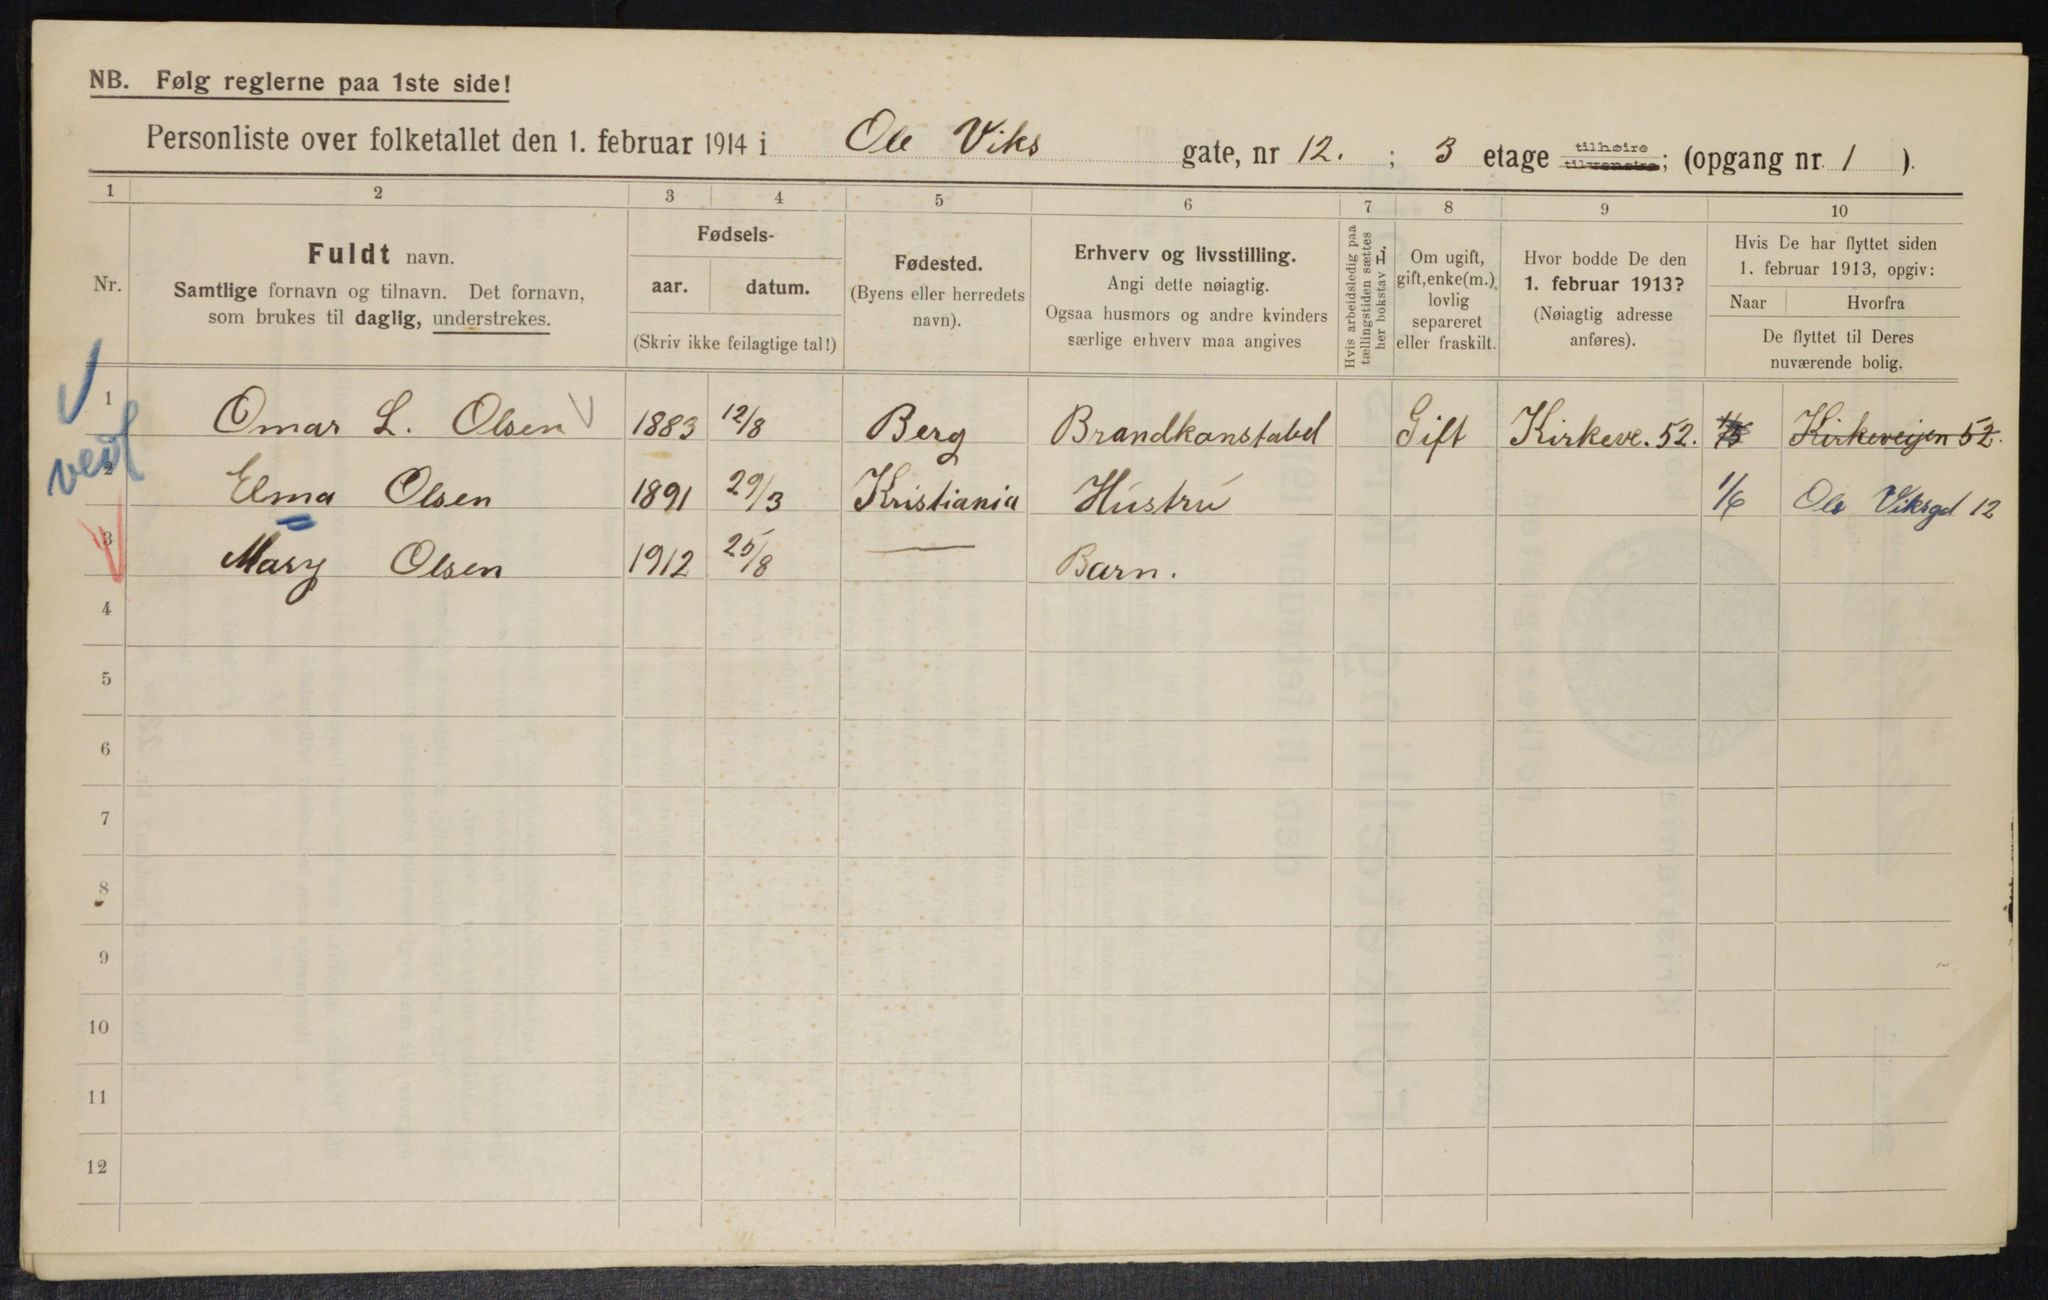 NB. Følg reglerne paa 1ste side!
Personliste over folketallet den 1. februar 1914 i Ole Viks gate, nr 12. ; 3 etage tilhøire tilvenstre; (opgang nr. 1 ).
1 2 3 4 5 6 7 8 9 10
Nr.
Fuldt navn.
Samtlige fornavn og tilnavn. Det fornavn,
som brukes til daglig, understrekes.
Fødsels-
aar. datum.
(Skriv ikke feilagtige tal!)
Fødested.
(Byens eller herredets
navn).
Erhverv og livsstilling.
Angi dette nøiagtig.
Ogsaa husmors og andre kvinders
særlige erhverv maa angives
Hvis arbeidsledig paa
tællingstiden sættes
her bokstav L.
Om ugift,
gift, enke(m.),
lovlig
separeret
eller fraskilt.
Hvor bodde De den
1. februar 1913?
(Nøiagtig adresse
anføres).
Hvis De har flyttet siden
1. februar 1913, opgiv:
Naar Hvorfra
De flyttet til Deres
nuværende bolig.
1 Omar L. Olsen 1883 12/8 Berg Brandkonstabel Gift Kirkeve. 52. Kirkeveijen 52.
2 Elma Olsen 1891 29/3 Kristiania Hustru 1/6 Ole Viksgd 12
3 Mary Olsen 1912 25/8 — Barn.
4
5
6
7
8
9
10
11
12